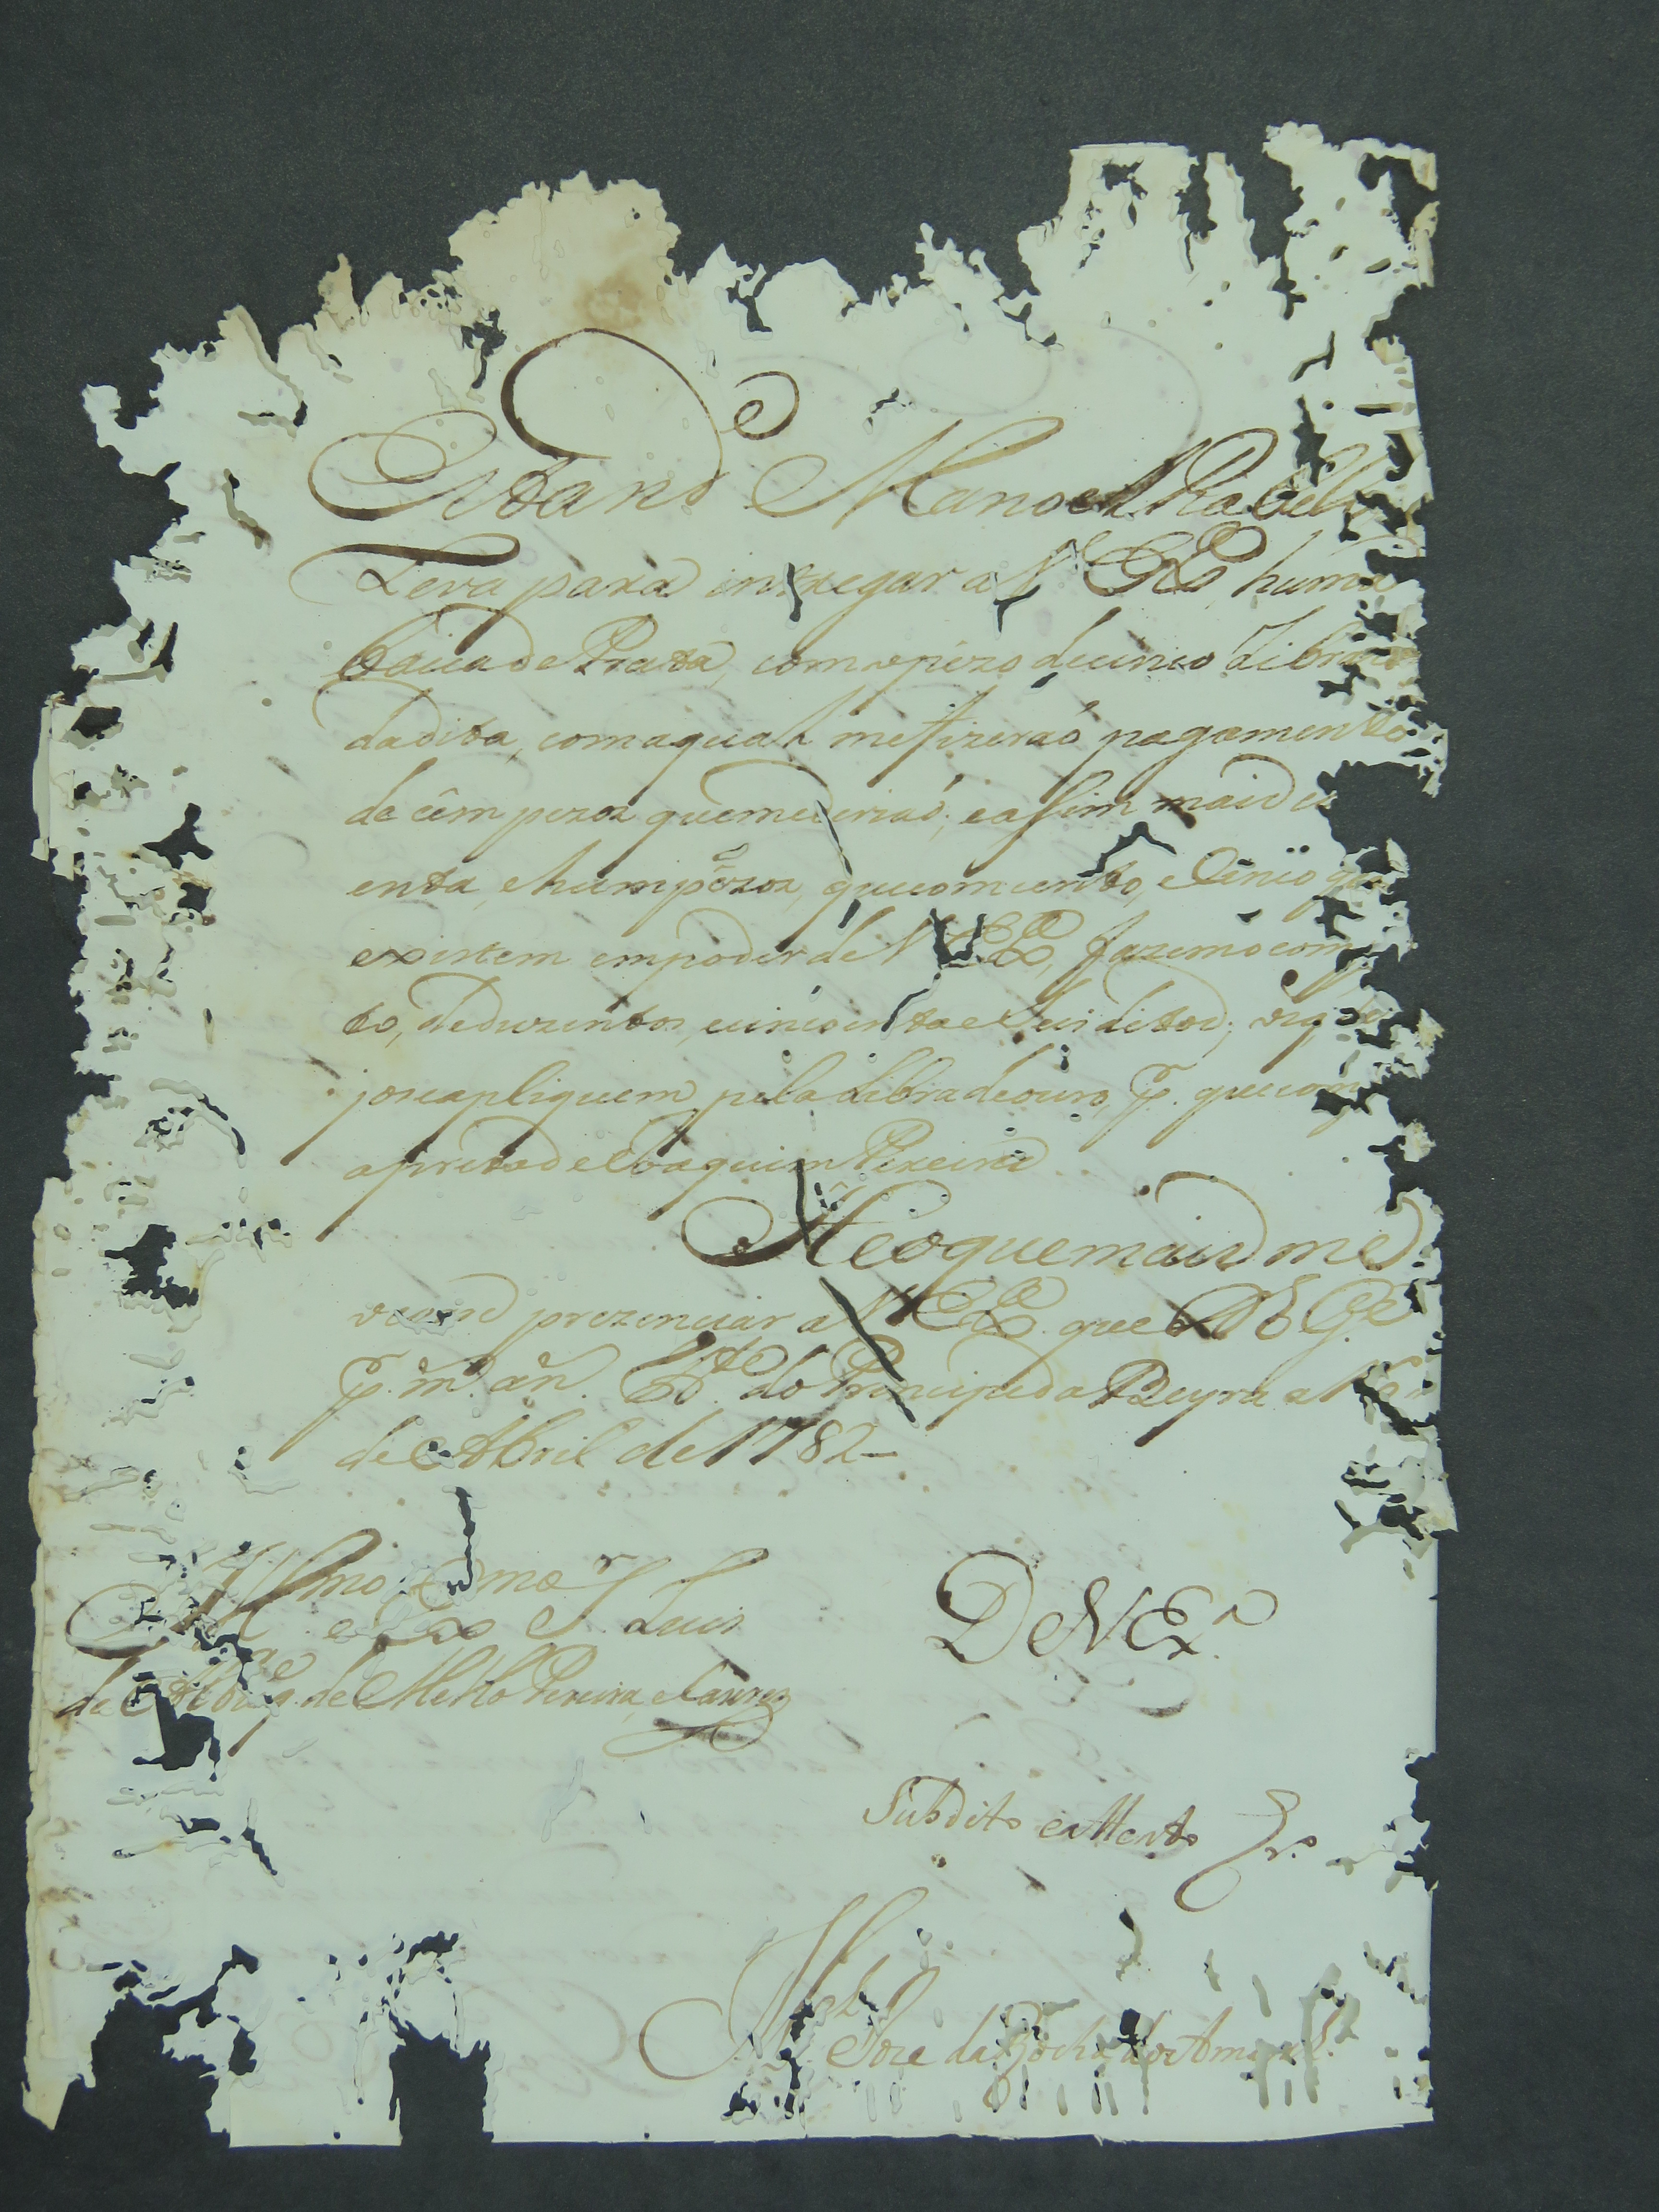 Manoel Rabell
Leva para entregar a V Ex huma
baciade Prata, com opezo decinco Libras
dadita, comaqual mefizeraó pagamento
de cem pezos quemedeviaó; eassim mais
enta, ehum pezos, quecom cento, e Cinco que
existem empoder de V Ex, fazem o com
to, deduzentos, cincoenta e Seis ditos;
joseapliquem pela Libradeouro, p. que
apretade Joaquim Pereira
He oque mais me
prezenciar a V Ex. que D.s G.e
p. m. an. F.te do Principe da Beyra a
de Abril de 1782-
Illmo e Exmo Sr Luis
de Albuq.e de Mello Pereira, e Caceres
De V Ex.a
Subdito e att
M.el Joze da Rocha do Amaral